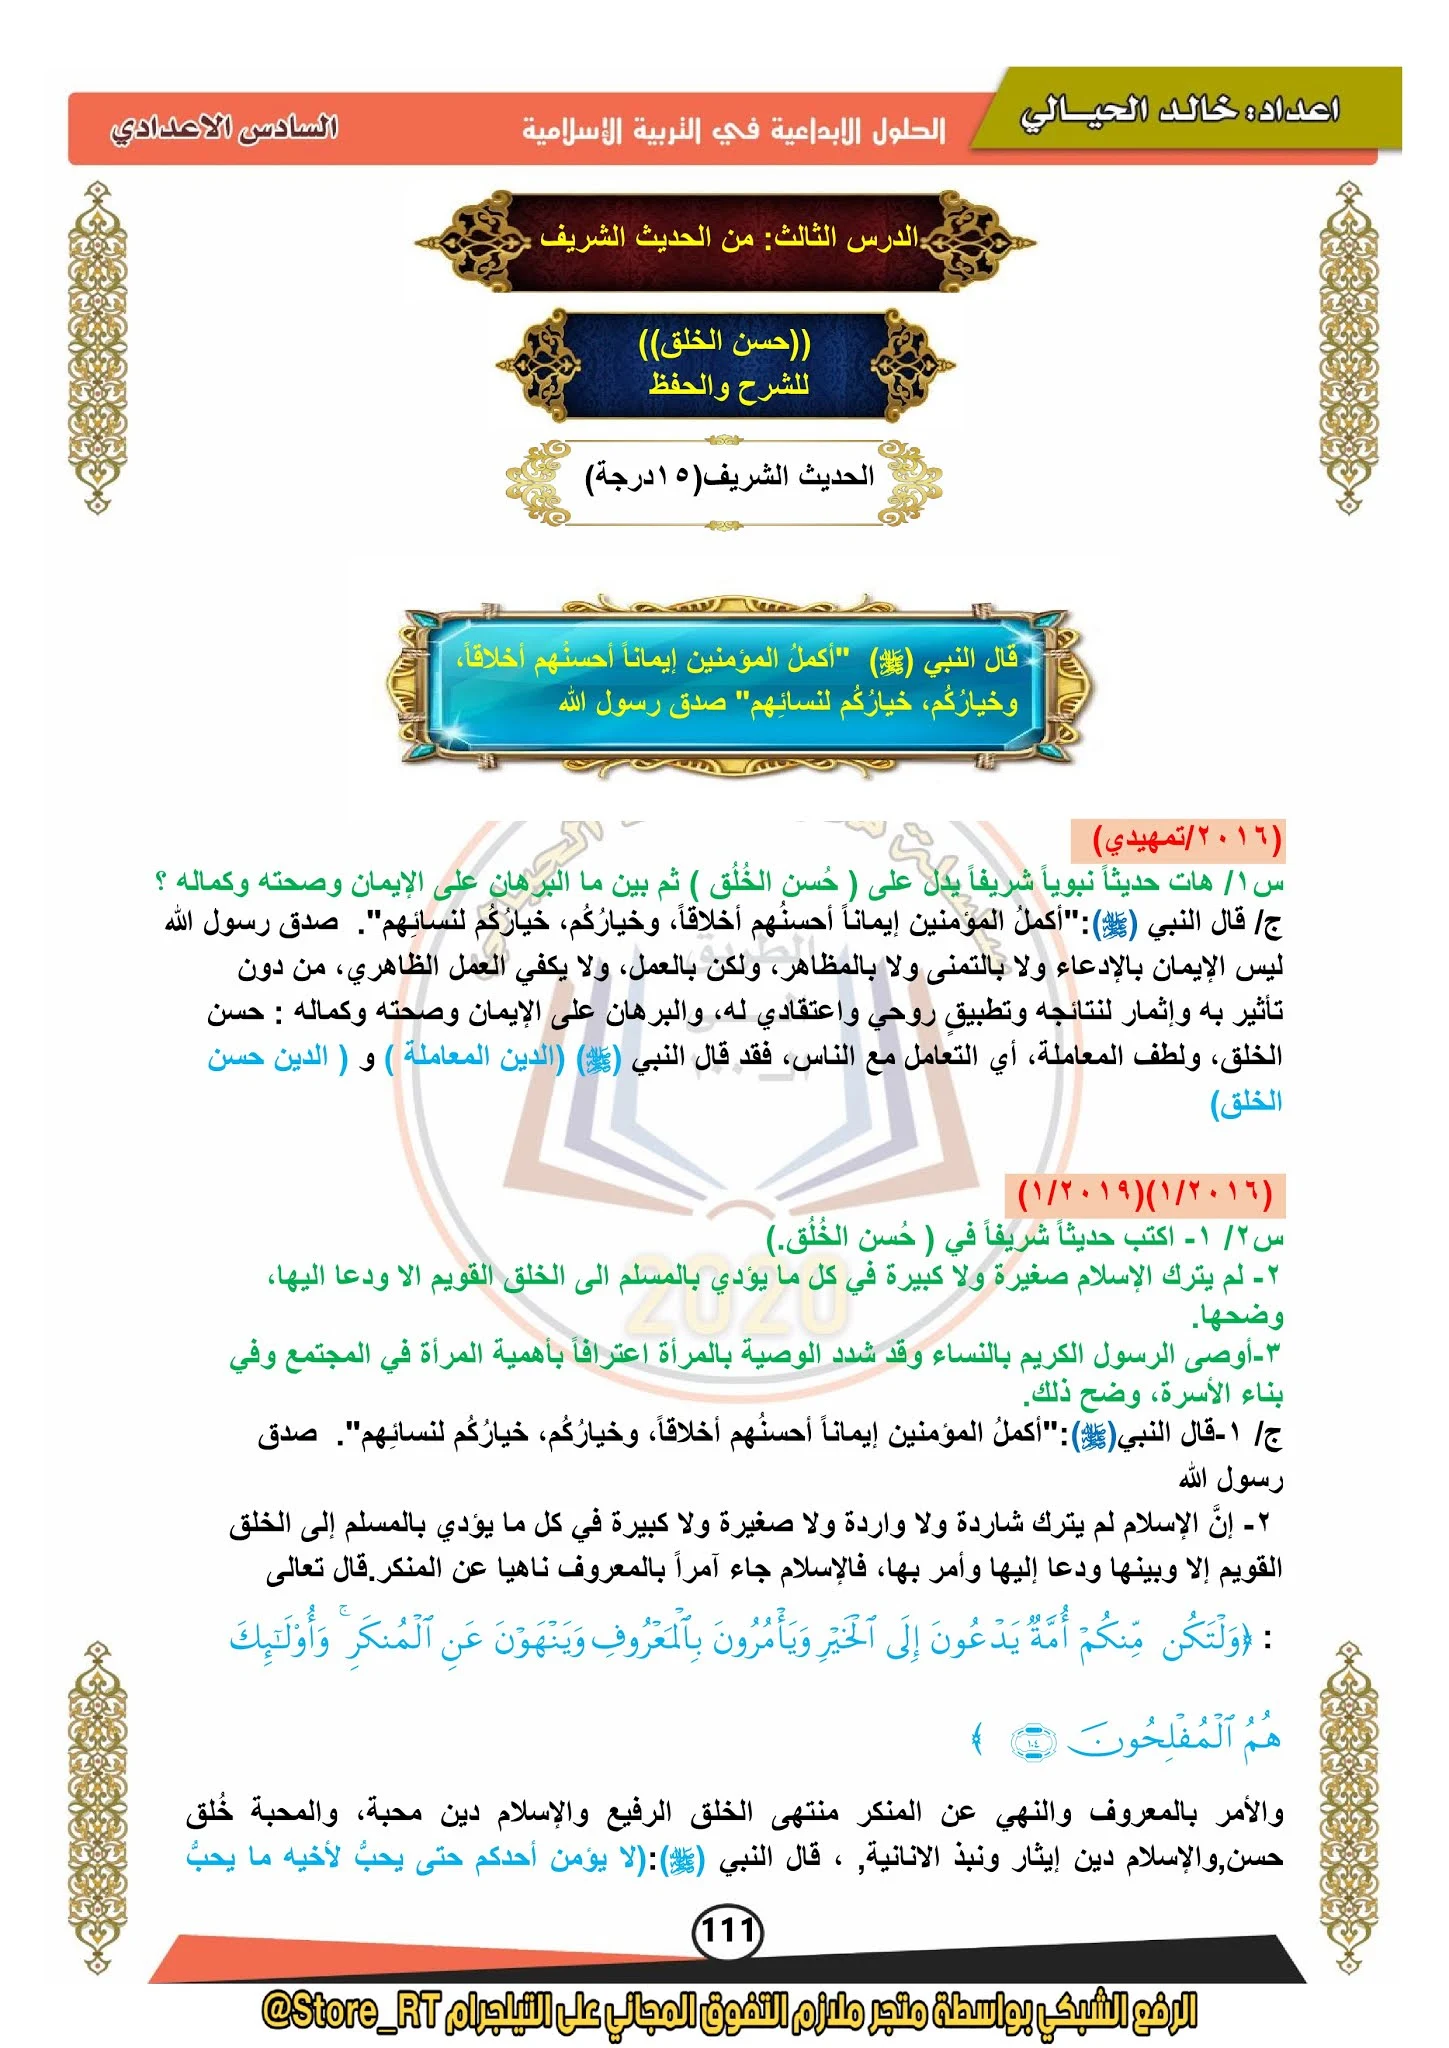 اعداد: خالد الحيـــالي
الحلول الابداعية في التربية الإسلامية
السادس الاعدادي
الدرس الثالث: من الحديث الشريف
((حسن الخلق))
للشرح والحفظ
الحديث الشريف(١٥درجة)
قال النبي (ﷺ) "أكملُ المؤمنين إيماناً أحسنُهم أخلاقاً،
وخيارُكُم، خيارُكُم لنسائِهم" صدق رسول الله
(٢٠١٦/تمهيدي)
س١/ هات حديثاً نبوياً شريفاً يدل على ( حُسن الخُلُق ) ثم بين ما البرهان على الإيمان وصحته وكماله ؟
ج/ قال النبي (ﷺ):"أكملُ المؤمنين إيماناً أحسنُهم أخلاقاً، وخيارُكُم، خيارُكُم لنسائِهم". صدق رسول الله
ليس الإيمان بالإدعاء ولا بالتمنى ولا بالمظاهر، ولكن بالعمل، ولا يكفي العمل الظاهري، من دون
تأثير به وإثمار لنتائجه وتطبيقٍ روحي واعتقادي له، والبرهان على الإيمان وصحته وكماله : حسن
الخلق، ولطف المعاملة، أي التعامل مع الناس، فقد قال النبي (ﷺ) (الدين المعاملة ) و ( الدين حسن
الخلق)
(١/٢٠١٦)(١/٢٠١٩)
س٢/ ١- اكتب حديثاً شريفاً في ( حُسن الخُلُق.)
٢- لم يترك الإسلام صغيرة ولا كبيرة في كل ما يؤدي بالمسلم الى الخلق القويم الا ودعا اليها،
وضحها.
٣-أوصى الرسول الكريم بالنساء وقد شدد الوصية بالمرأة اعترافاً بأهمية المرأة في المجتمع وفي
بناء الأسرة، وضح ذلك.
ج/ ١-قال النبي(ﷺ):"أكملُ المؤمنين إيماناً أحسنُهم أخلاقاً، وخيارُكُم، خيارُكُم لنسائِهم". صدق
رسول الله
٢- إنَّ الإسلام لم يترك شاردة ولا واردة ولا صغيرة ولا كبيرة في كل ما يؤدي بالمسلم إلى الخلق
القويم إلا وبينها ودعا إليها وأمر بها، فالإسلام جاء آمراً بالمعروف ناهيا عن المنكر.قال تعالى
: ﴿وَلْتَكُن مِّنكُمْ أُمَّةٌ يَدْعُونَ إِلَى ٱلْخَيْرِ وَيَأْمُرُونَ بِٱلْمَعْرُوفِ وَيَنْهَوْنَ عَنِ ٱلْمُنكَرِ ۚ وَأُوْلَٰٓئِكَ
هُمُ ٱلْمُفْلِحُونَ ١٠٤ ﴾
والأمر بالمعروف والنهي عن المنكر منتهى الخلق الرفيع والإسلام دين محبة، والمحبة خُلق
حسن,والإسلام دين إيثار ونبذ الانانية, ، قال النبي (ﷺ):(لا يؤمن أحدكم حتى يحبُّ لأخيه ما يحبُّ
111
الرفع الشبكي بواسطة متجر ملازم التفوق المجاني على التيلجرام Store_RT@
2020